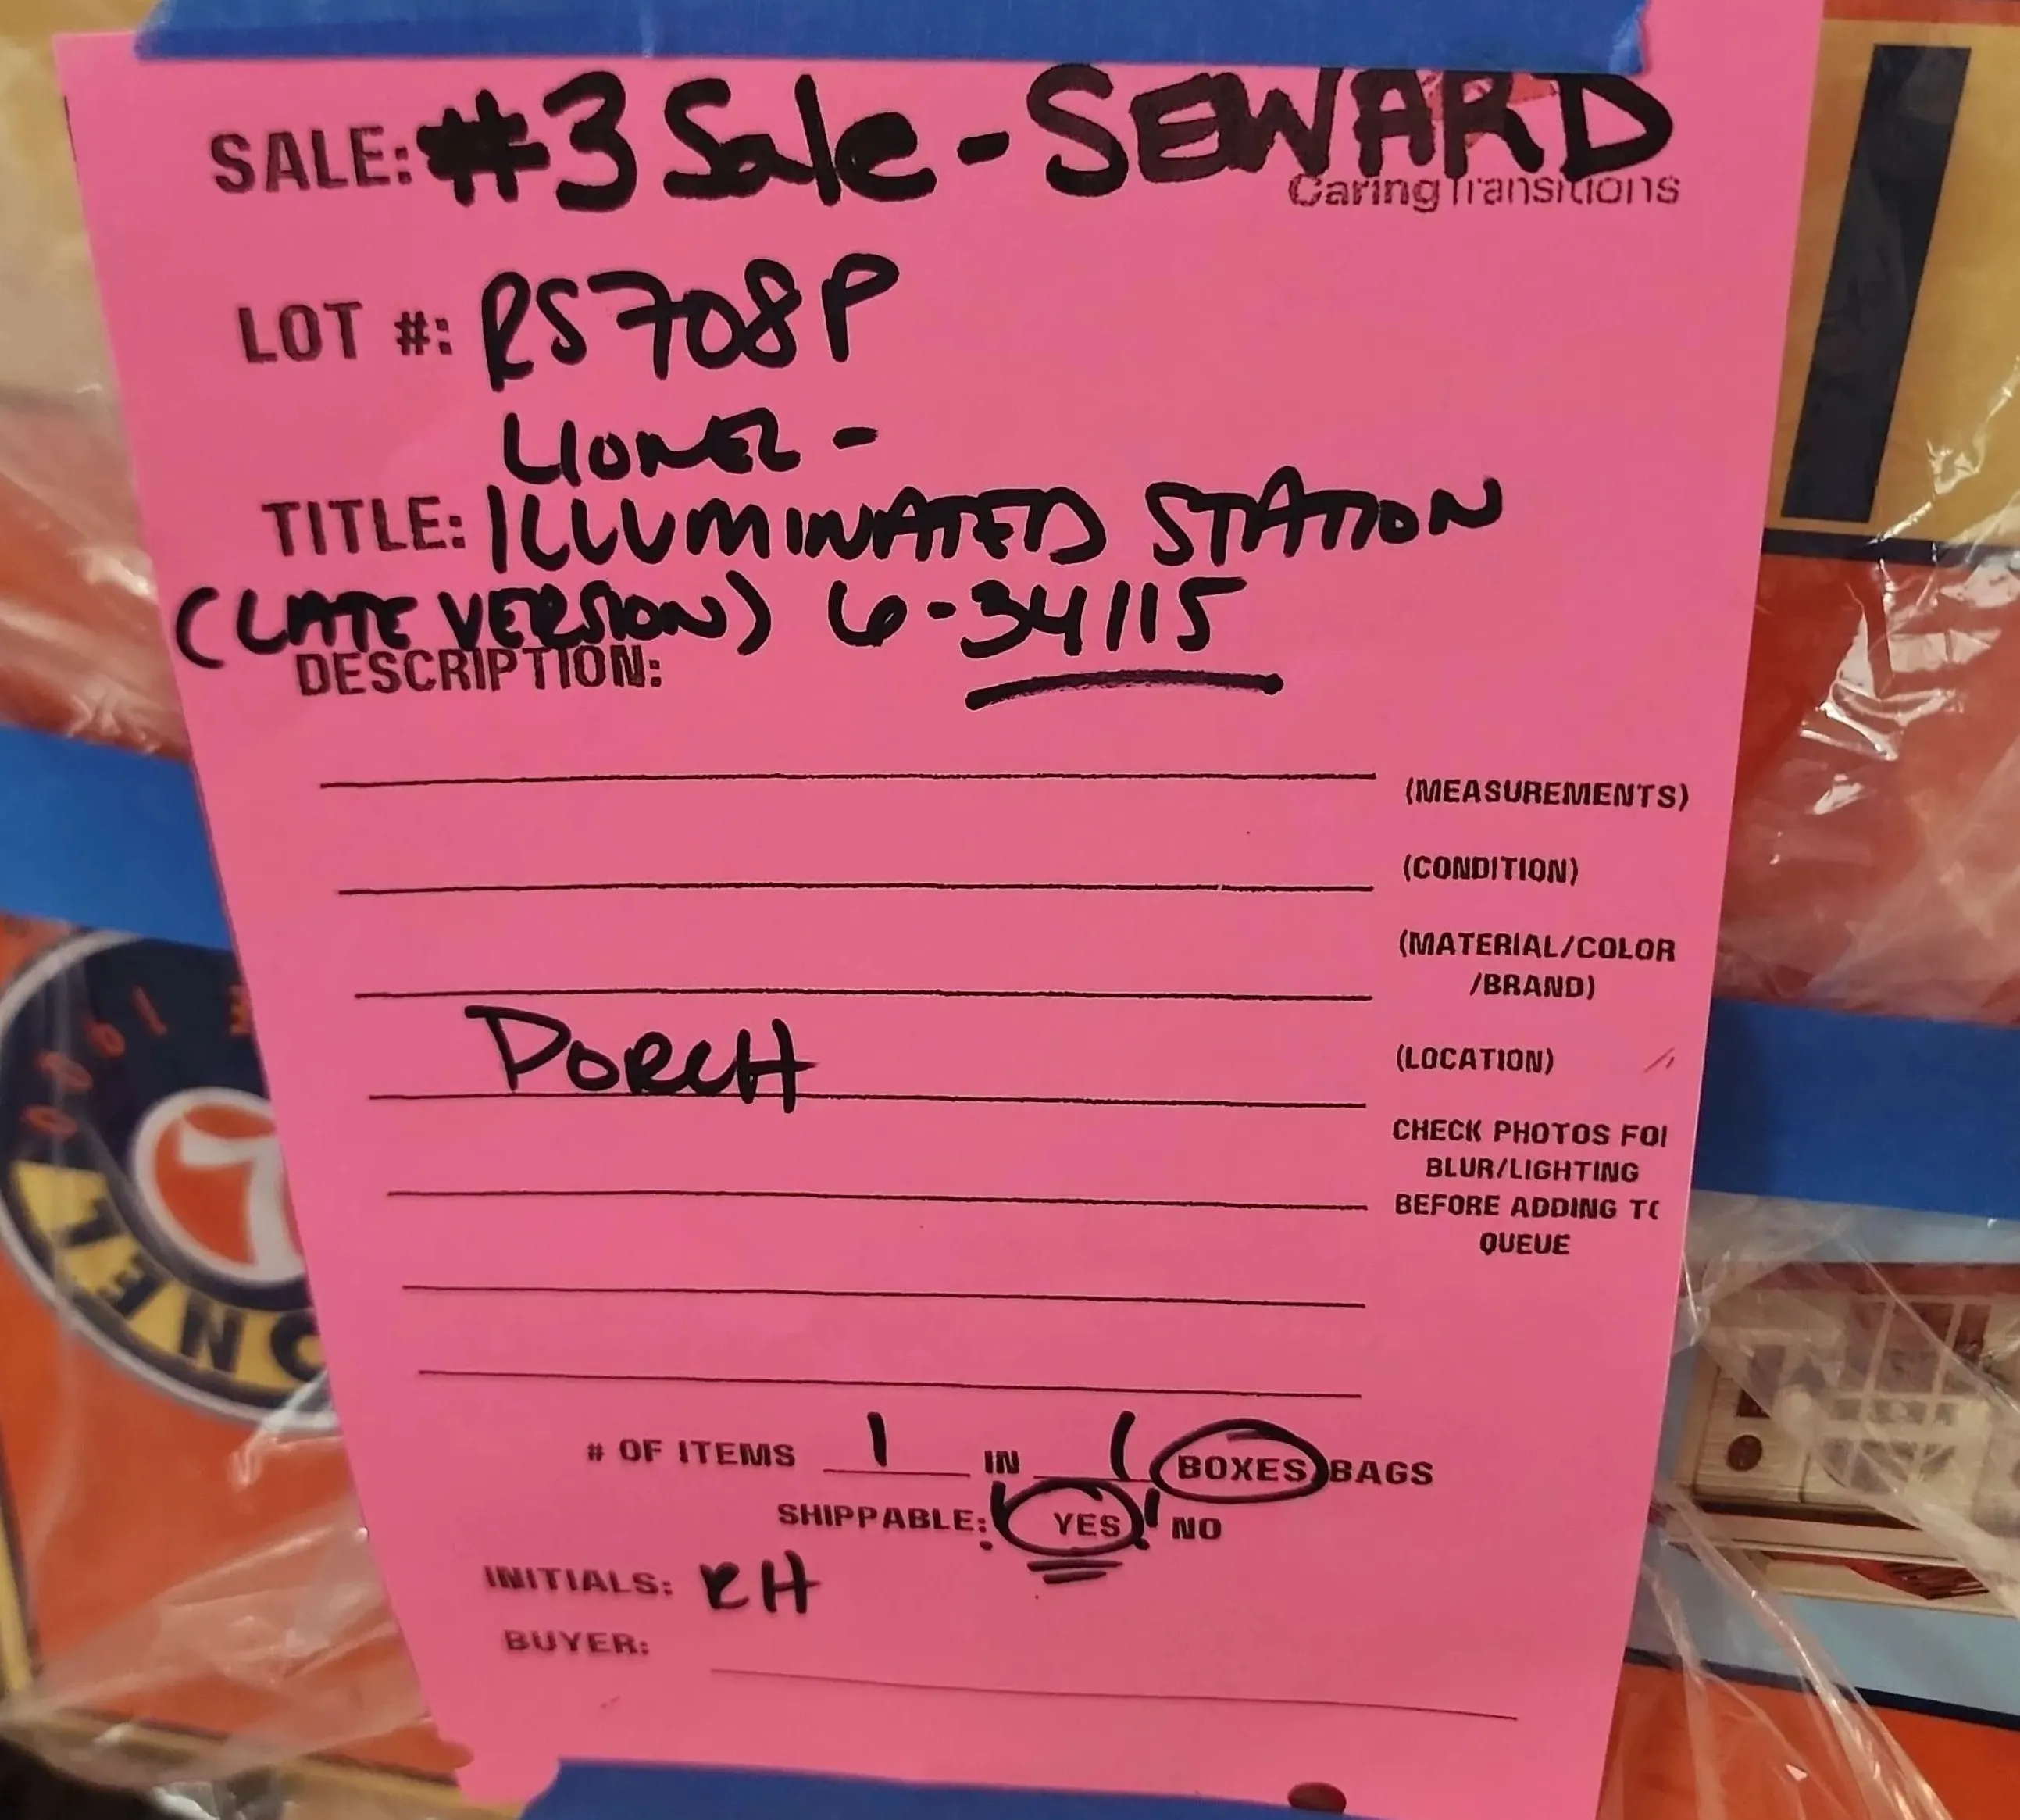 SALE: #3 Sale - SEWARD
CaringTransitions
LOT #: RS708P
LIONEL -
TITLE: ILLUMINATED STATION
(LATE VERSION) 6-34115
DESCRIPTION:
(MEASUREMENTS)
(CONDITION)
(MATERIAL/COLOR
/BRAND)
PORCH
(LOCATION)
CHECK PHOTOS FOI
BLUR/LIGHTING
BEFORE ADDING TC
QUEUE
# OF ITEMS 1 IN 1 BOXES BAGS
SHIPPABLE: ! YES ! NO
INITIALS: RH
BUYER:
ONEL